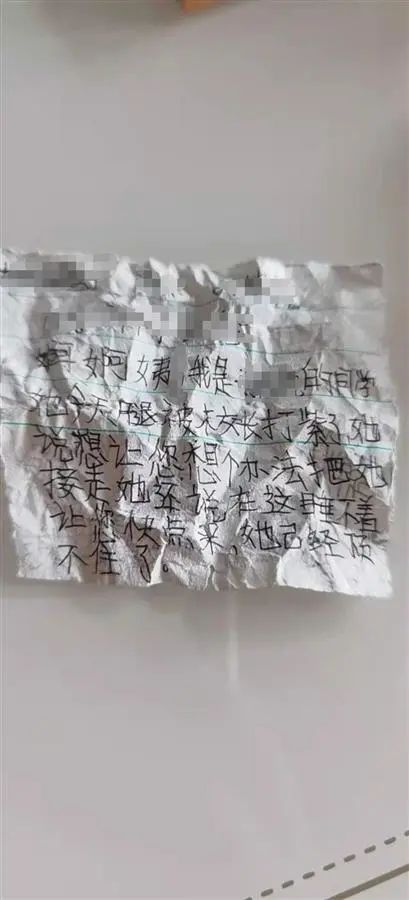 阿姨 我是 的同学
她今天腿被 打紫了她
说想让您想个办法把她
接走她还说在这睡不着
让您快点来,她已经顶
不住了。